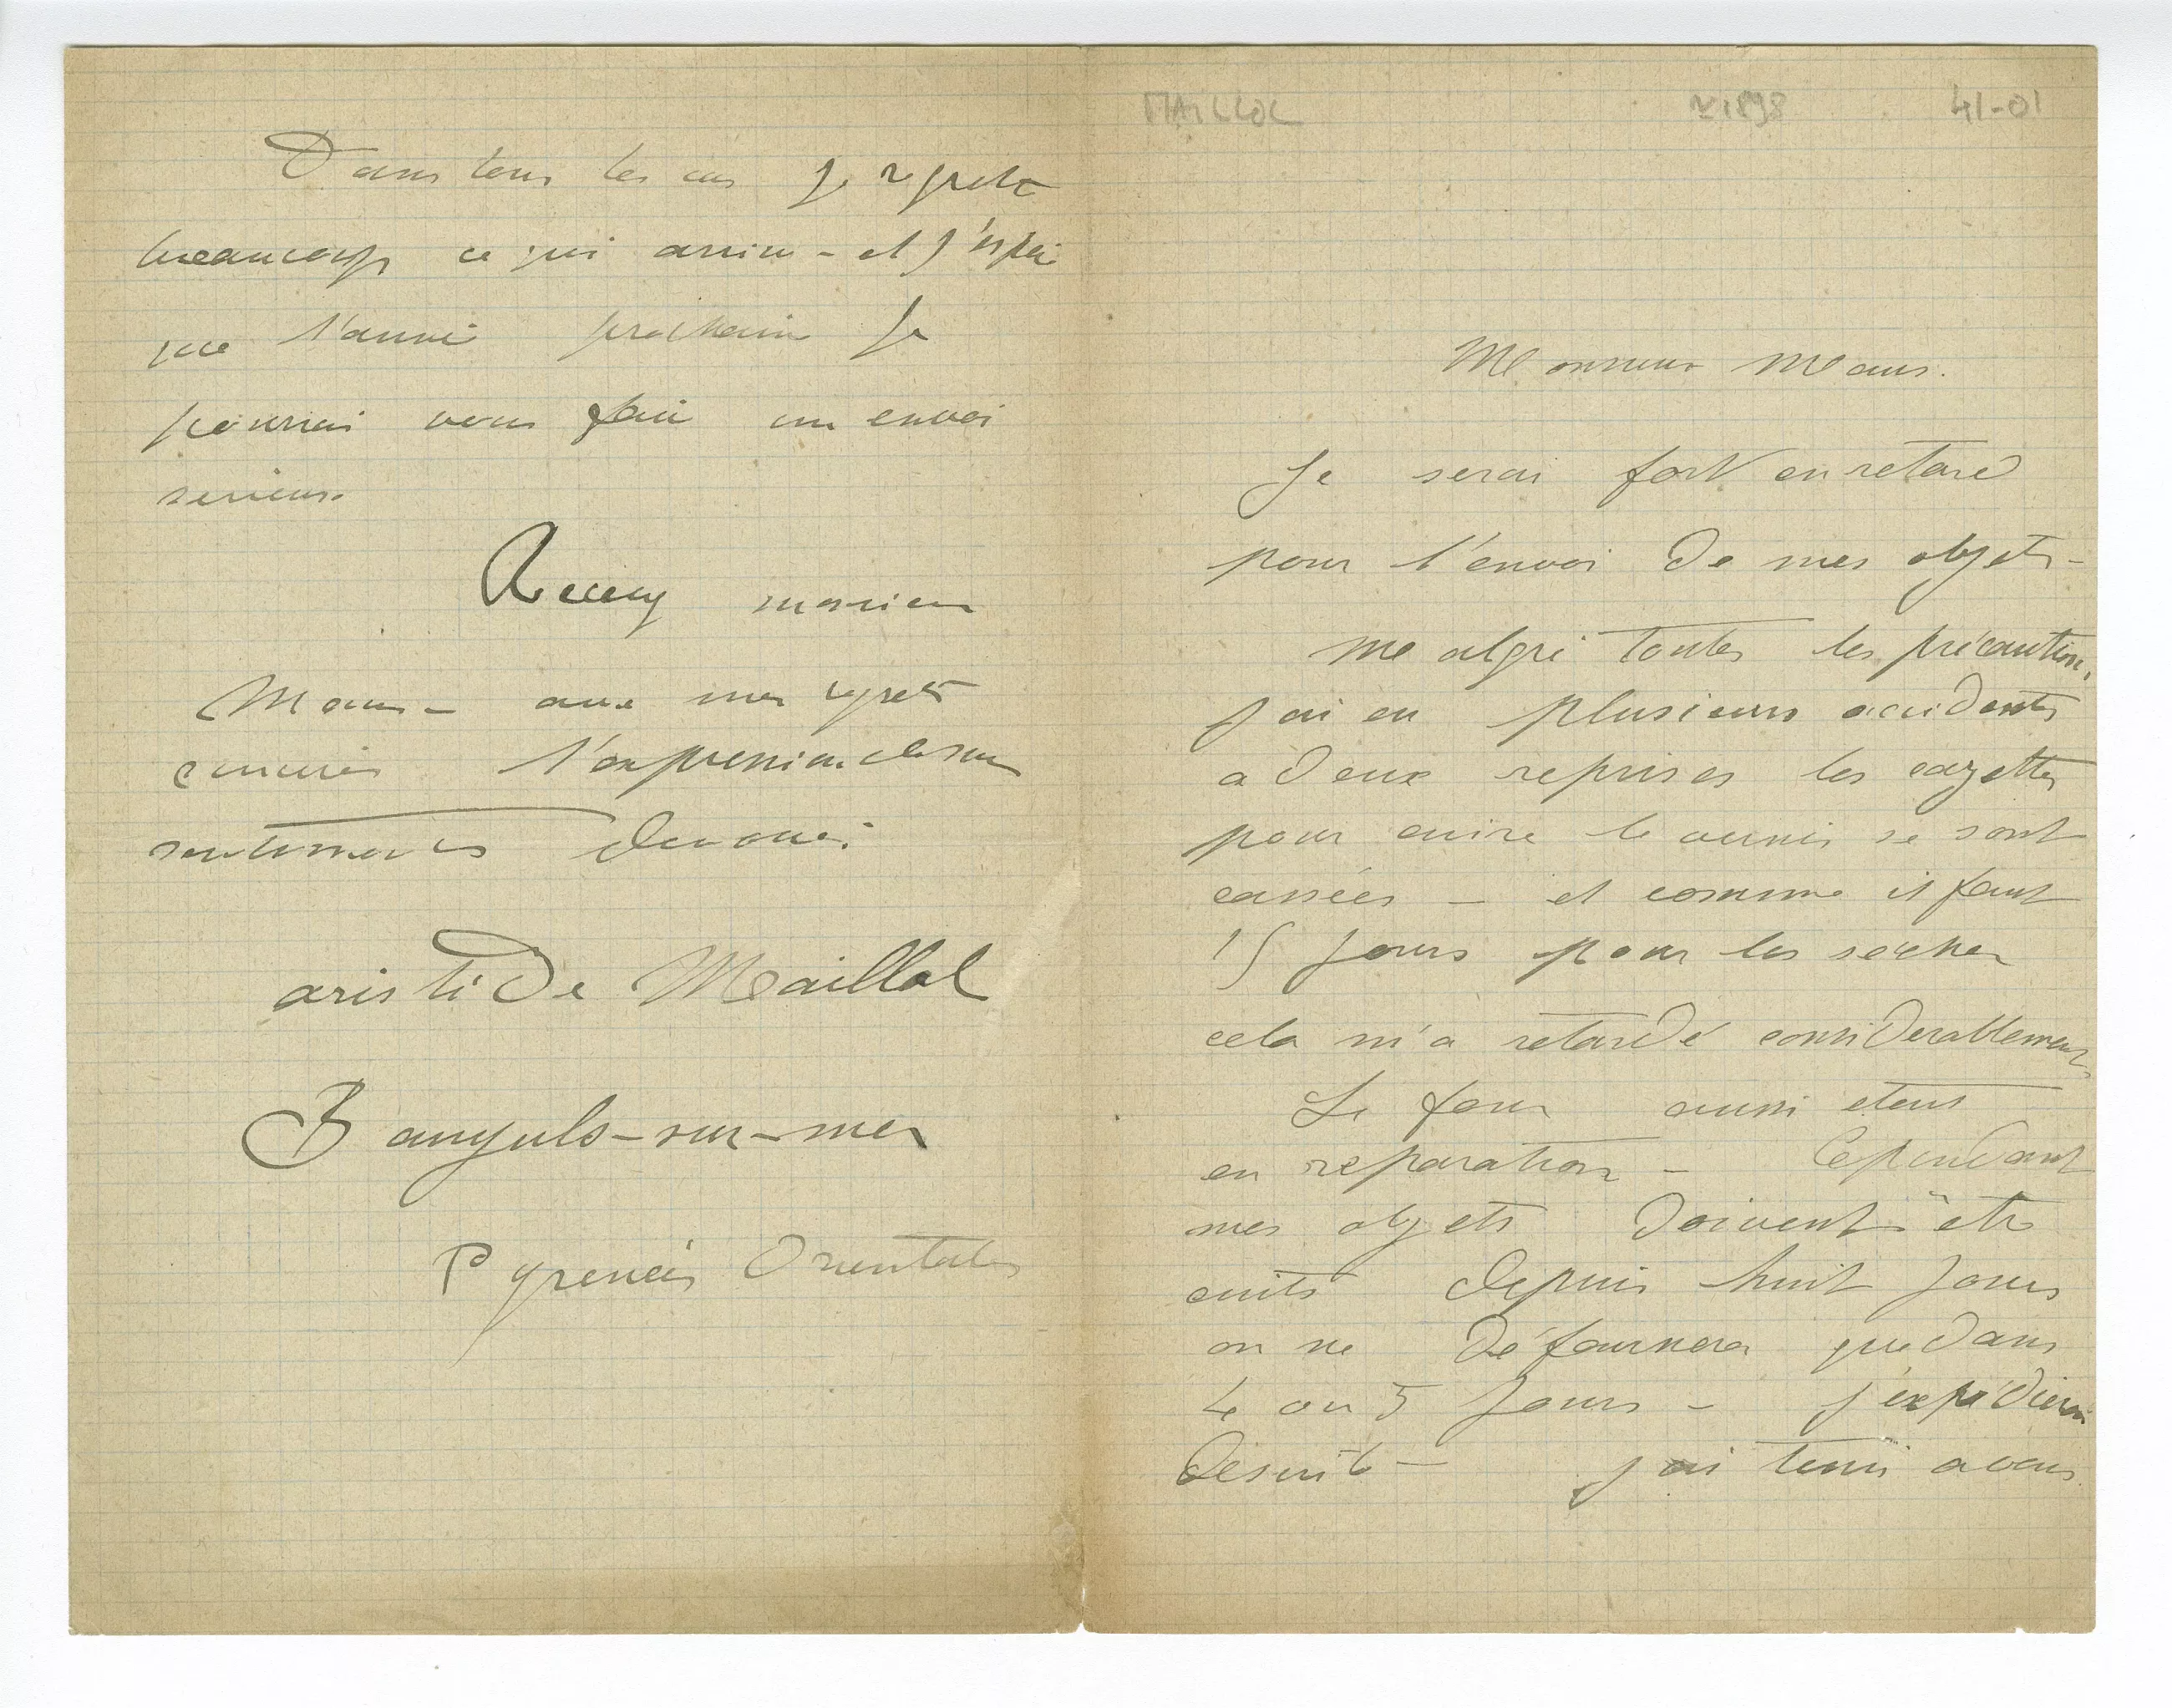 MAILLOL ~1898 41-01
Monsieur Maus.
Je serai fort en retard
pour l'envoi de mes objets -
Malgré toutes les précautions,
j'ai eu plusieurs accidents
a deux reprises les cazettes
pour cuire le vernis se sont
cassées - et comme il faut
15 jours pour les secher
cela m'a retardé considerablement
Le four aussi etant
en reparation - Cependant
mes objets doivent être
cuits depuis huit jours
on ne défournera que dans
4 ou 5 jours - j'expédierai
desuite - j'ai tenu a vous
Dans tous les cas je regrette
beaucoup ce qui arrive - et j'espère
que l'année prochaine je
pourrai vous faire un envoi
serieux.
Recevez monsieur
Maus - avec mes regrets
sinceres l'expression de mes
sentiments devoués
aristide Maillol
Banyuls-sur-mer
Pyrenées Orientales